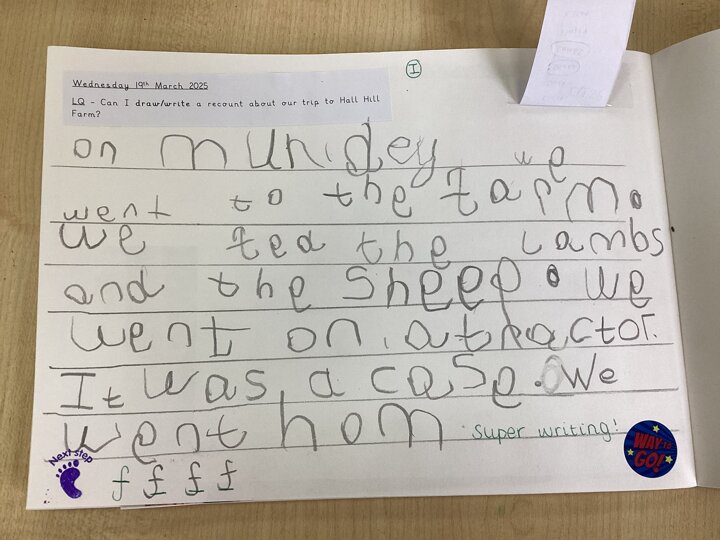 Wednesday 19th March 2025
LQ - Can I draw/write a recount about our trip to Hall Hill
Farm?
I
on munidey we
went to the farm.
we fed the Lambs
and the sheep. we
went on a tractor.
It was a case. We
went hom
super writing!
WAY TO GO!
Next step
f f f f